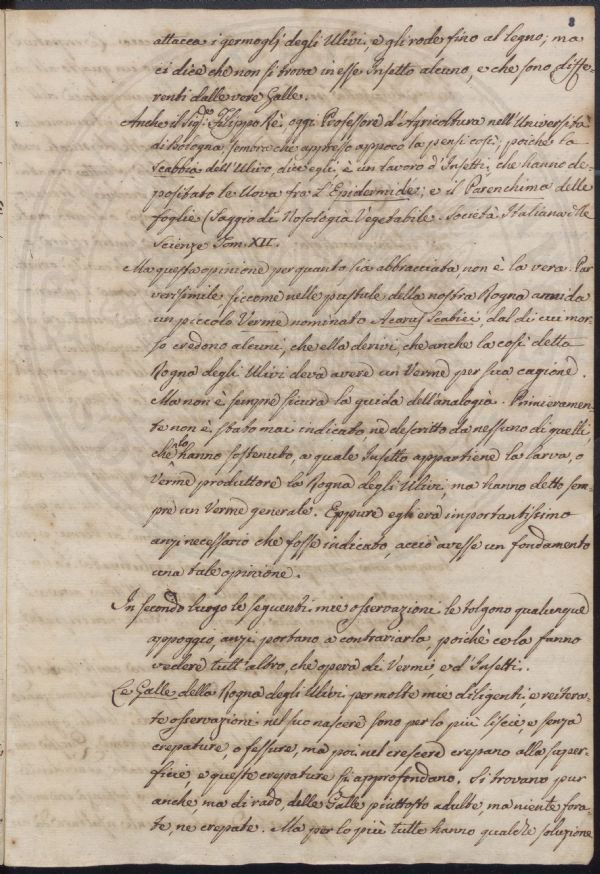 8
attacca i germoglj degli Ulivi, e gli rode fino al legno; ma
ci dice che non si trova in esse Insetto alcuno, e che sono diffe-
renti dalle vere Galle.
Anche il Sig.re Filippo Rè, oggi Professore d'Agricoltura nell'Università
di Bologna sembra che appresso appoco la pensi così; poichè la
scabbia dell'Ulivo, dice egli, è un lavoro d'Insetti, che hanno de-
positato le Uova tra l'Epidermide; e il Parenchima delle
foglie (Saggio di Nosologia Vegetabile. Società Italiana delle
Scienze Tom. XII.
Ma questa opinione per quanto sia abbracciata, non è la vera. Par
verisimile siccome nelle pustule della nostra Rogna annida
un piccolo Verme nominato Acarus Scabiei, dal di cui mor-
so credono alcuni, che ella derivi, che anche la così detta
Rogna degli Ulivi deva avere un Verme per sua cagione.
Ma non è sempre sicura la guida dell'analogia. Primieramen-
te non è stato mai indicato nè descritto da nessuno di quelli,
che lo hanno sostenuto, a quale Insetto appartiene la larva, o
Verme produttore la Rogna degli Ulivi, ma hanno detto sem-
pre un Verme generale. Eppure egli era importantissimo
anzi necessario che fosse indicato, acciò avesse un fondamento
una tale opinione.
In secondo luogo le seguenti mie osservazioni le tolgono qualunque
appoggio, anzi portano a contrariarla, poichè ce la fanno
vedere tutt'altro, che opera di Vermi, e d'Insetti.
Le Galle della Rogna degli Ulivi per molte mie diligenti, e reitera-
te osservazioni nel suo nascere sono per lo più liscie, e senza
crepature o fessure, ma poi nel crescere crepano alla super-
ficie e queste crepature si approfondano. Si trovano pur
anche, ma di rado, delle Galle piuttosto adulte, ma niente fora-
te, ne crepate. Ma per lo più tutte hanno qualche soluzione